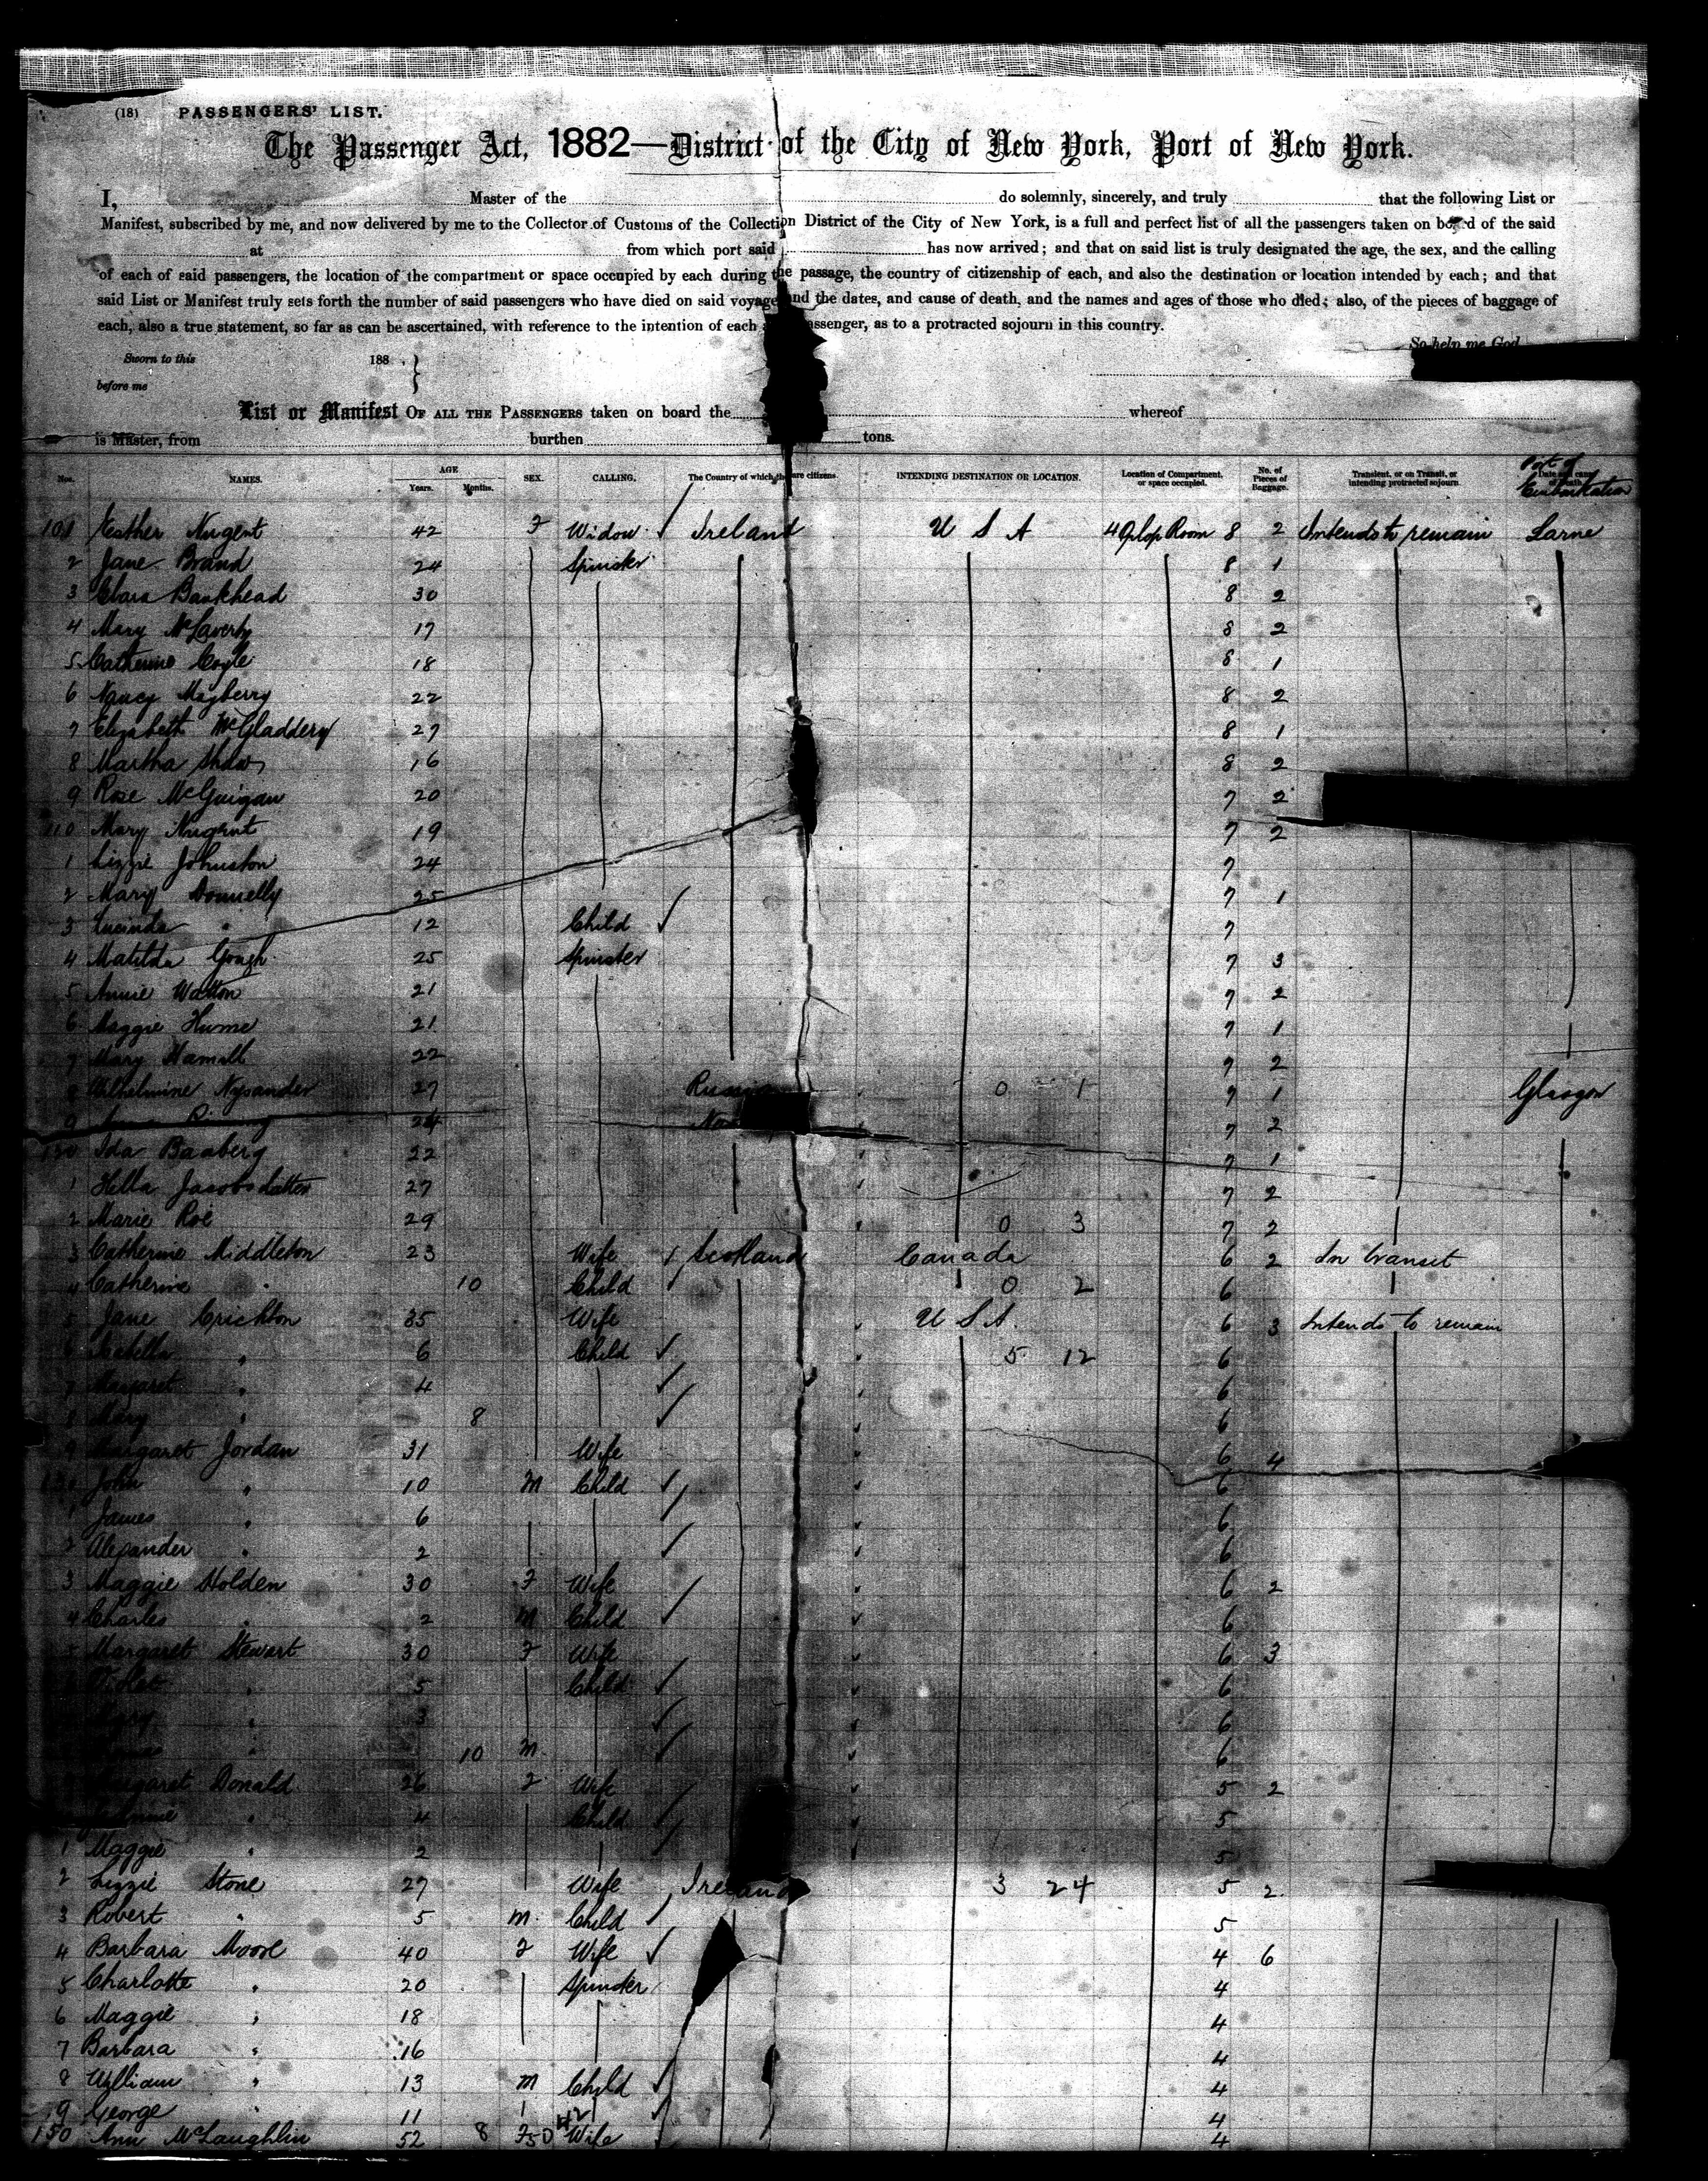 (18) PASSENGERS' LIST.
The Passenger Act, 1882—District of the City of New York, Port of New York.
I, Master of the do solemnly, sincerely, and truly that the following List or
Manifest, subscribed by me, and now delivered by me to the Collector of Customs of the Collection District of the City of New York, is a full and perfect list of all the passengers taken on board of the said
at from which port said has now arrived; and that on said list is truly designated the age, the sex, and the calling
of each of said passengers, the location of the compartment or space occupied by each during the passage, the country of citizenship of each, and also the destination or location intended by each; and that
said List or Manifest truly sets forth the number of said passengers who have died on said voyage and the dates, and cause of death, and the names and ages of those who died; also, of the pieces of baggage of
each, also a true statement, so far as can be ascertained, with reference to the intention of each passenger, as to a protracted sojourn in this country.
So help me God
Sworn to this 188 .
before me
List or Manifest OF ALL THE PASSENGERS taken on board the whereof
is Master, from burthen tons.
Nos. NAMES. AGE Years. Months. SEX. CALLING. The Country of which they are citizens. INTENDING DESTINATION OR LOCATION. Location of Compartment, or space occupied. No. of Pieces of Baggage. Transient, or on Transit, or intending protracted sojourn. Port of Embarkation
101 Esther Nugent 42 F Widow Ireland U S A 4 Room 8 2 Intends to remain Larne
2 Jane Brand 24 Spinster 8 1
3 Clara Bankhead 30 8 2
4 Mary McLaverty 17 8 2
5 Catherine Coyle 18 8 1
6 Nancy Mayberry 22 8 2
7 Elizabeth McGladdery 27 8 1
8 Martha Shaw 16 8 2
9 Rose McGuigan 20 7 2
110 Mary Nugent 19 7 2
1 Lizzie Johnston 24 7
2 Mary Donnelly 25 7 1
3 Lucinda " 12 Child 7
4 Matilda Gough 25 Spinster 7 3
5 Annie Watton 21 7 2
6 Maggie Hume 21 7 1
7 Mary Hamill 22 7 2
8 Wilhelmine Nysander 27 0 1 7 1 Glasgow
9 24 7 2
120 Ida Baaberg 22 7 1
1 Hella Jacobsdatter 27 7 2
2 Marie Roe 29 0 3 7 2
3 Catherine Middleton 23 Wife Scotland Canada 6 2 In transit
4 Catherine " 10 Child 0 2 6
5 Jane Crichton 35 Wife U S A. 6 3 Intends to remain
6 Isabella " 6 Child 5 12 6
7 Margaret " 4 6
8 Mary " 8 6
9 Margaret Jordan 31 Wife 6 4
130 John " 10 M Child 6
1 James " 6 6
2 Alexander " 2 6
3 Maggie Holden 30 F Wife 6 2
4 Charles " 2 M Child 6
5 Margaret Stewart 30 F Wife 6 3
Violet " 5 Child 6
" 3 6
" 10 M 6
Margaret Donald 26 F Wife 5 2
" 4 Child 5
1 Maggie " 2 5
2 Lizzie Stone 27 Wife Ireland 3 24 5 2
3 Robert " 5 M. Child 5
4 Barbara Moore 40 F Wife 4 6
5 Charlotte " 20 Spinster 4
6 Maggie " 18 4
7 Barbara " 16 4
8 William " 13 M Child 4
9 George " 11 42 4
150 Ann McLaughlin 52 8 F 50 Wife 4